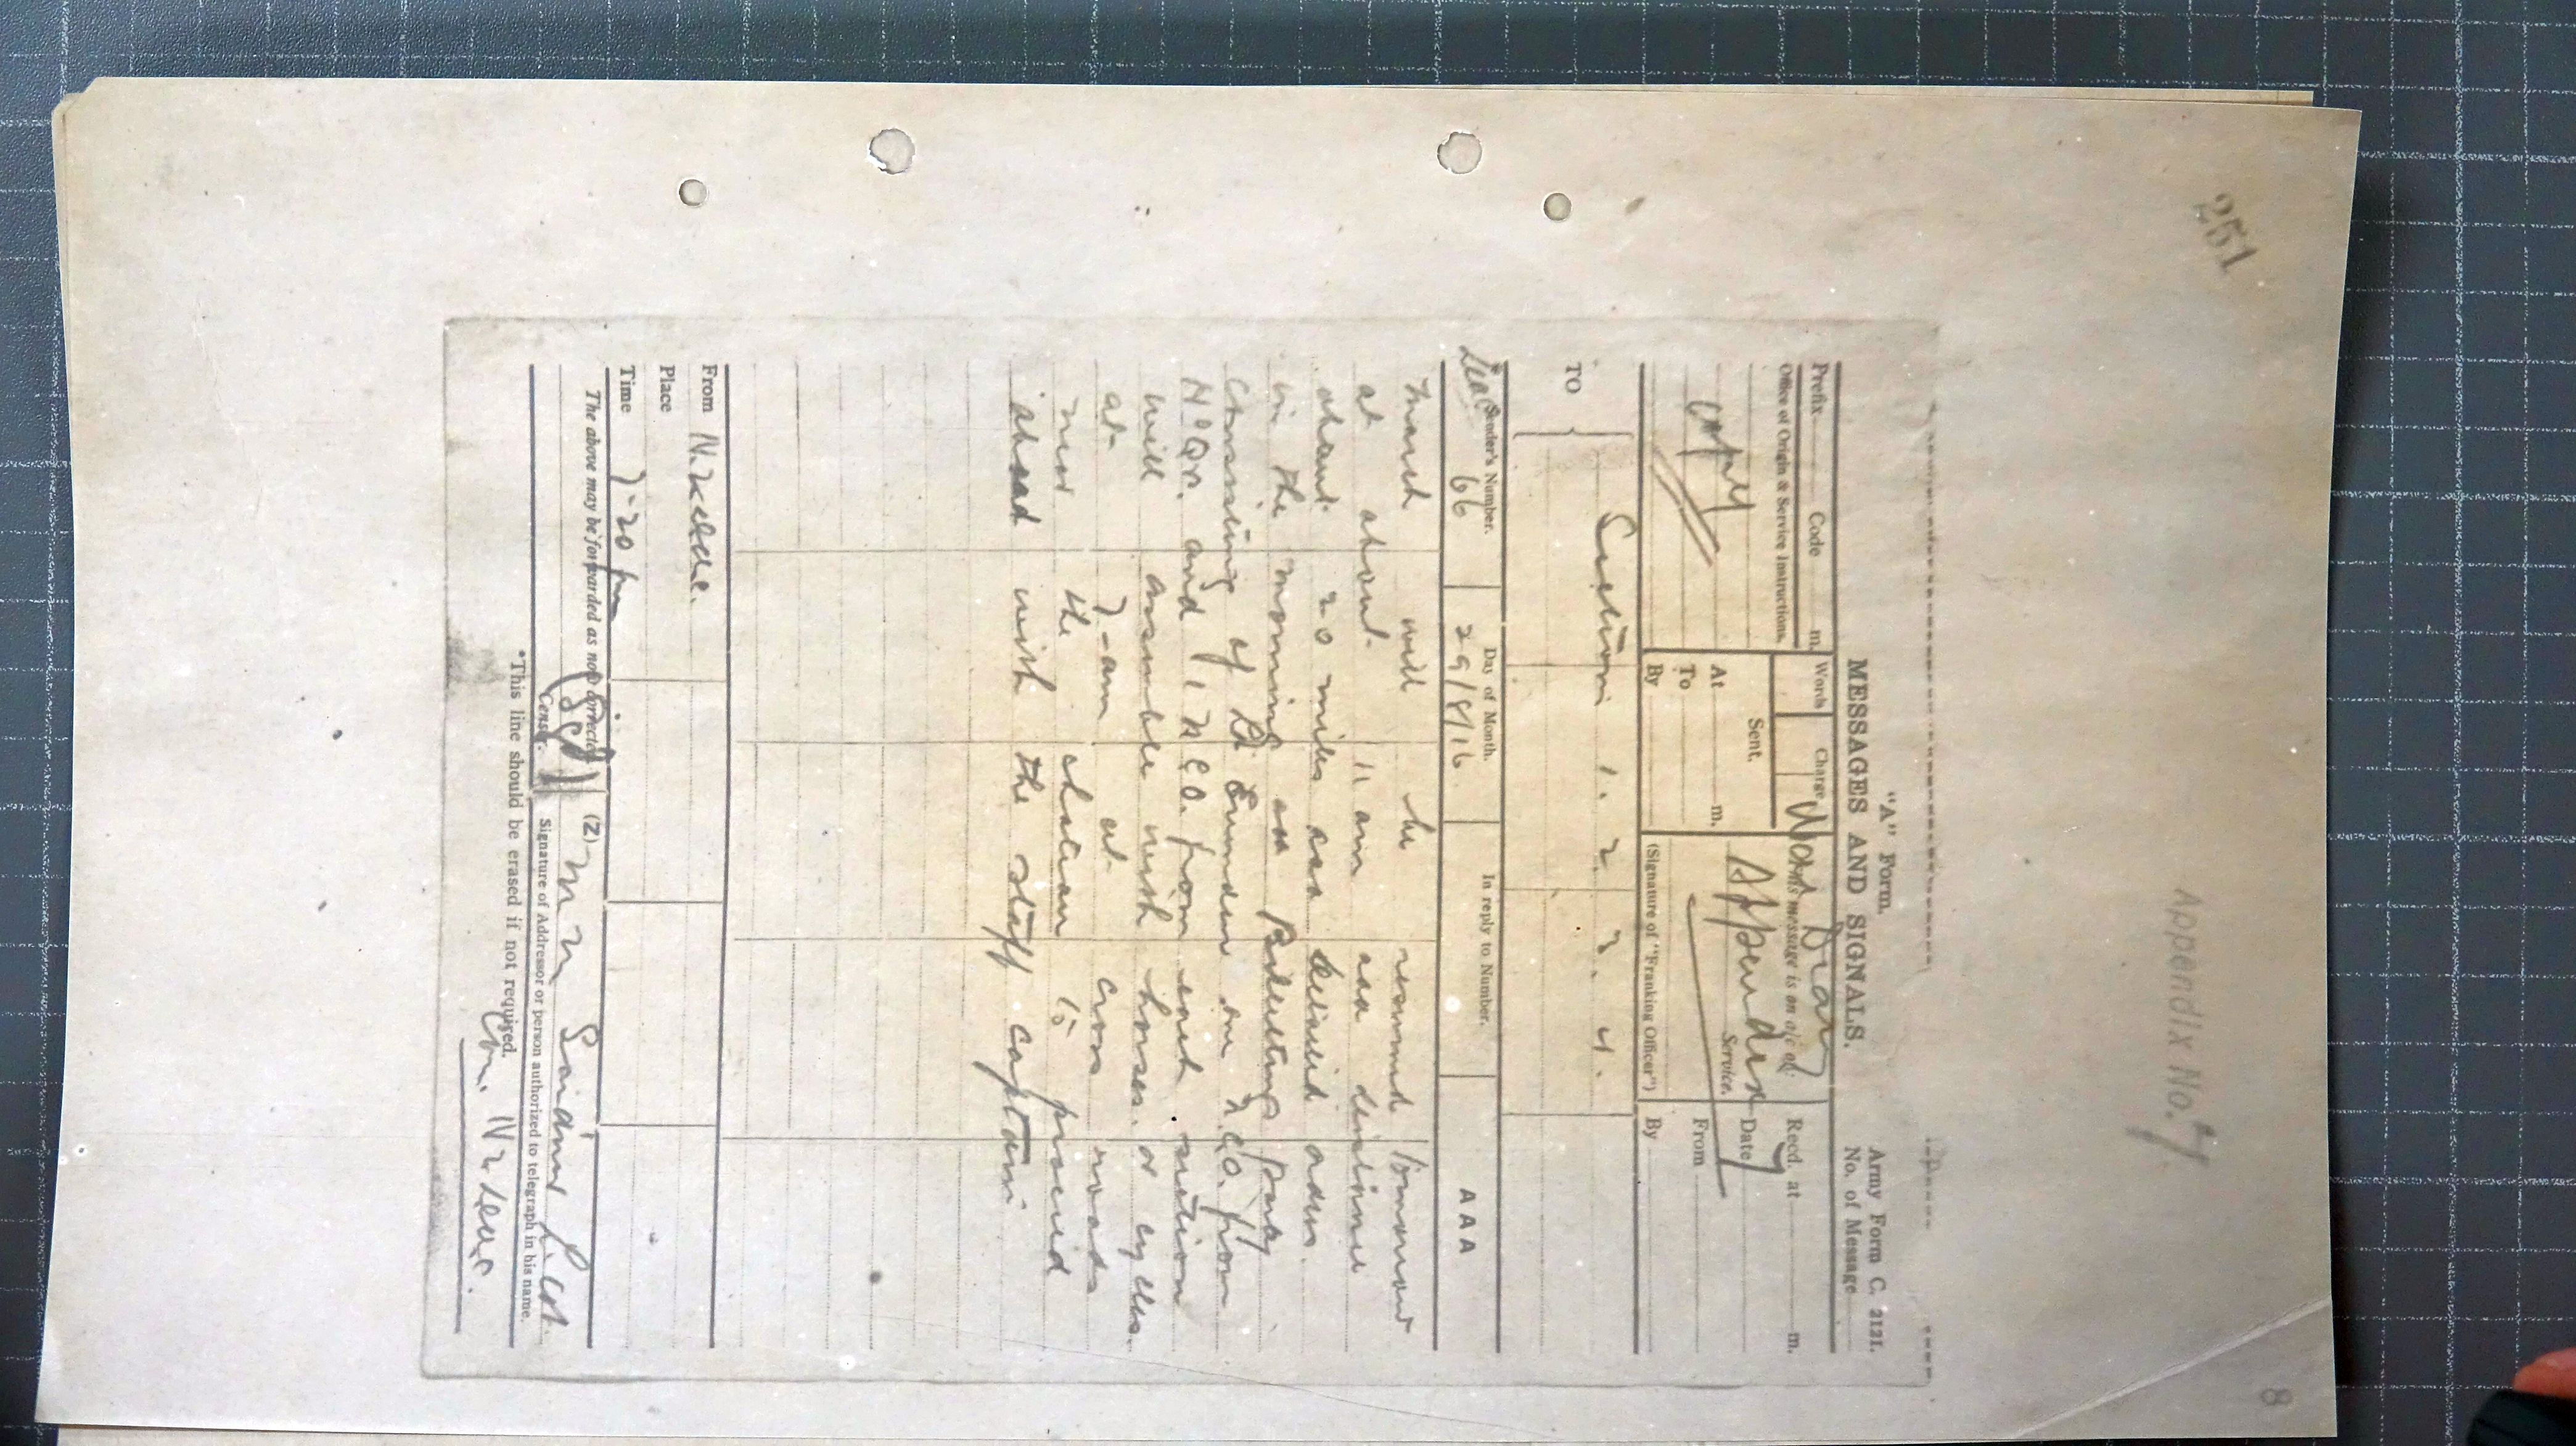 251
Appendix No. 7.
8
"A" Form.
Army Form C. 2121.
MESSAGES AND SIGNALS.
No. of Message
Prefix Code m. Words Charge
War Diary
This message is on a/c of:
Recd. at m.
Office of Origin & Service Instructions.
Copy
Sent.
At m.
To
By
Appendix 7
Service.
(Signature of "Franking Officer")
Date
From
By
TO
Sections 1. 2. 3. 4.
Sender's Number.
66
Day of Month.
29/8/16
In reply to Number.
AAA
March will be resumed tomorrow
at about 11 am aaa distance
about 20 miles aaa detailed orders
in the morning aaa Billeting party
consisting of Lt one NCO. from
HdQrs. and 1 NCO. from each section
will assemble with horses or cycles
at 7-am at cross roads
near the chateau to proceed
ahead with the staff captain
From
Place
Time 7-20 pm
The above may be forwarded as now corrected.
(Z)
(Sgd)
Censor.
Signature of Addressor or person authorized to telegraph in his name.
*This line should be erased if not required.